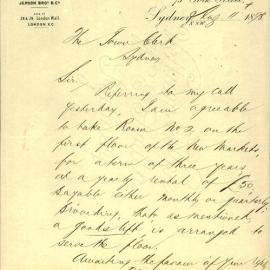 JEPSON BROS & CO
28 & 29, London Wall,
LONDON E.C.
Sydney, Aug 11 1898
N.S.W.
The Town Clerk
Sydney
Sir,
Referring to my call
yesterday, I am agreeable
to take Room No 2 on the
first floor of the New Markets
for a term of three years
at a yearly rental of £50
payable either monthly or quarterly
providing, that as mentioned,
a goods lift is arranged to
serve the floor.
Awaiting the favour of your reply